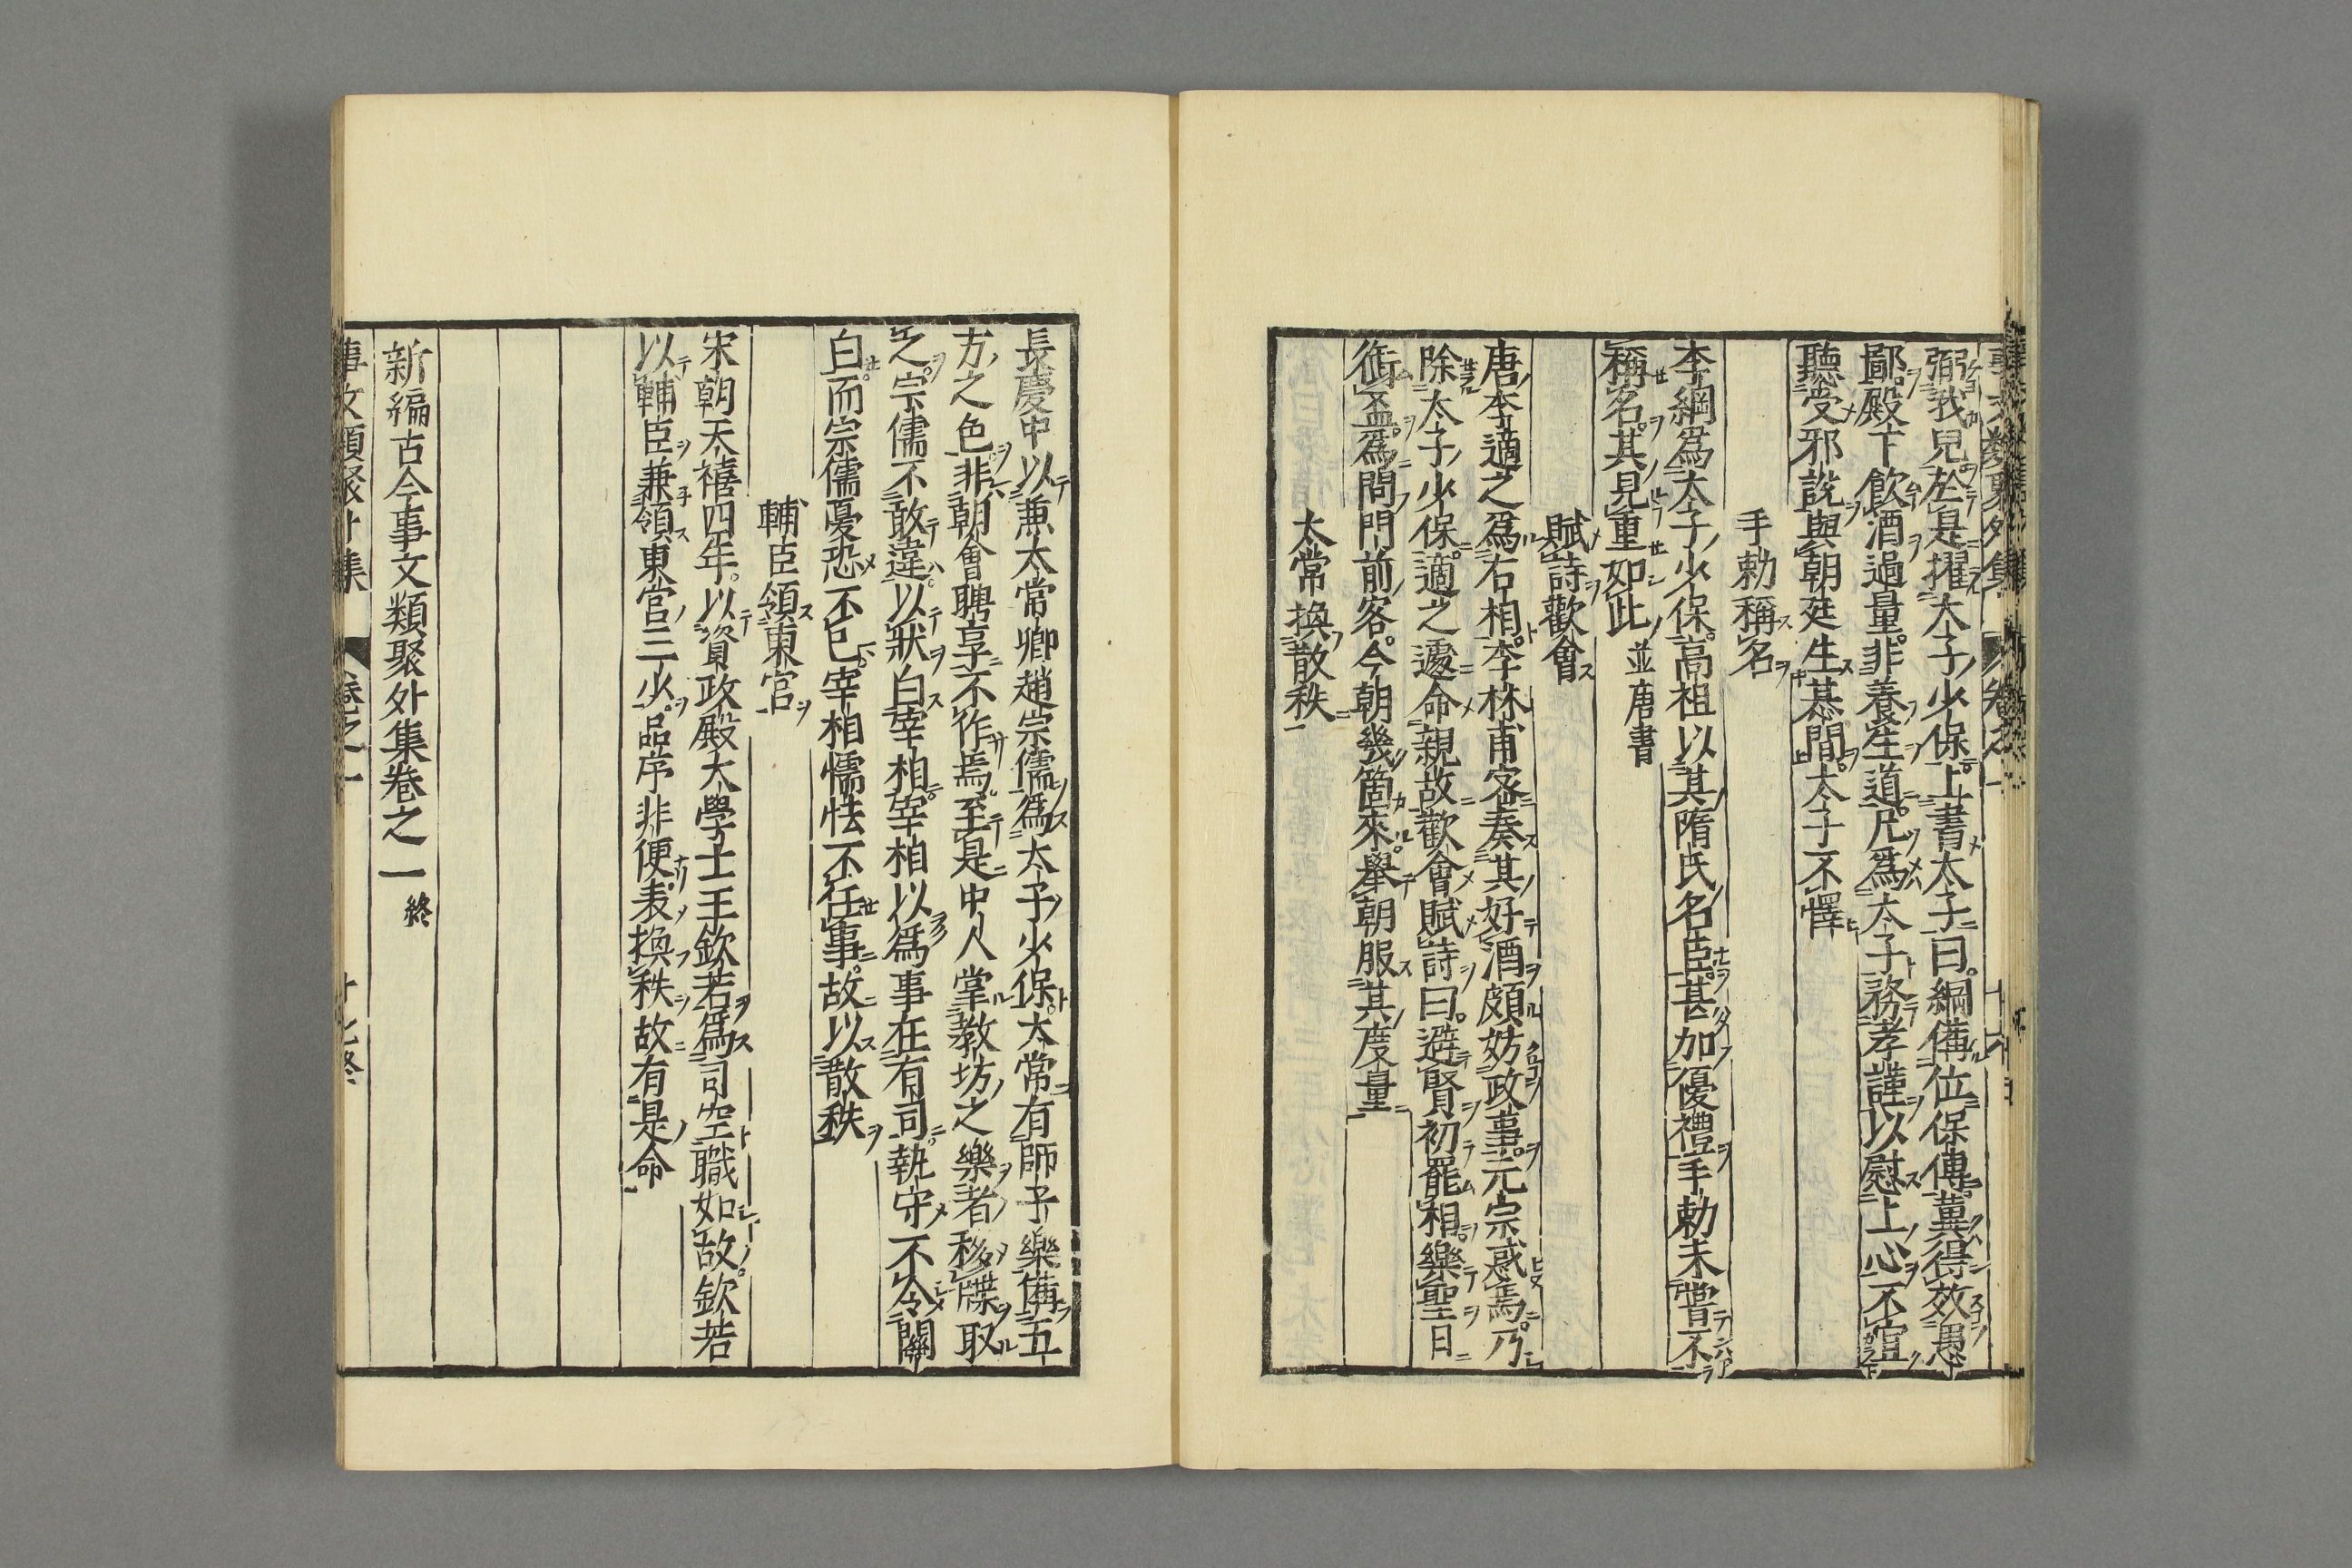 弼我兒於是擢太子少保上書太子曰綱備位保傅冀得效愚
鄙殿下飲酒過量非養生道凡爲太子務孝謹以慰上心不宜
聽受邪說與朝廷生惎間太子不懌
手勅稱名
李綱爲太子少保高祖以其隋氏名臣甚加優禮手勅未嘗不
稱名其見重如此 並唐書
賦詩歡會
唐李適之爲右相李林甫密奏其好酒頗妨政事元宗惑焉乃
除太子少保適之遽命親故歡會賦詩曰避賢初罷相樂聖日
銜盃爲問門前客今朝幾箇來舉朝服其度量
太常換散秩
長慶中以兼太常卿趙宗儒爲太子少保太常有師子樂備五
方之色非朝會聘享不作焉至是中人掌教坊之樂者移牒取
之宗儒不敢違以狀白宰相宰相以爲事在有司執守不令關
白而宗儒憂恐不已宰相懦怯不任事故以散秩
輔臣領東宮
宋朝天禧四年以資政殿大學士王欽若爲司空職如故欽若
以輔臣兼領東宮三少品序非便表換秩故有是命
新編古今事文類聚外集卷之一 終
事文類聚外集 卷之一